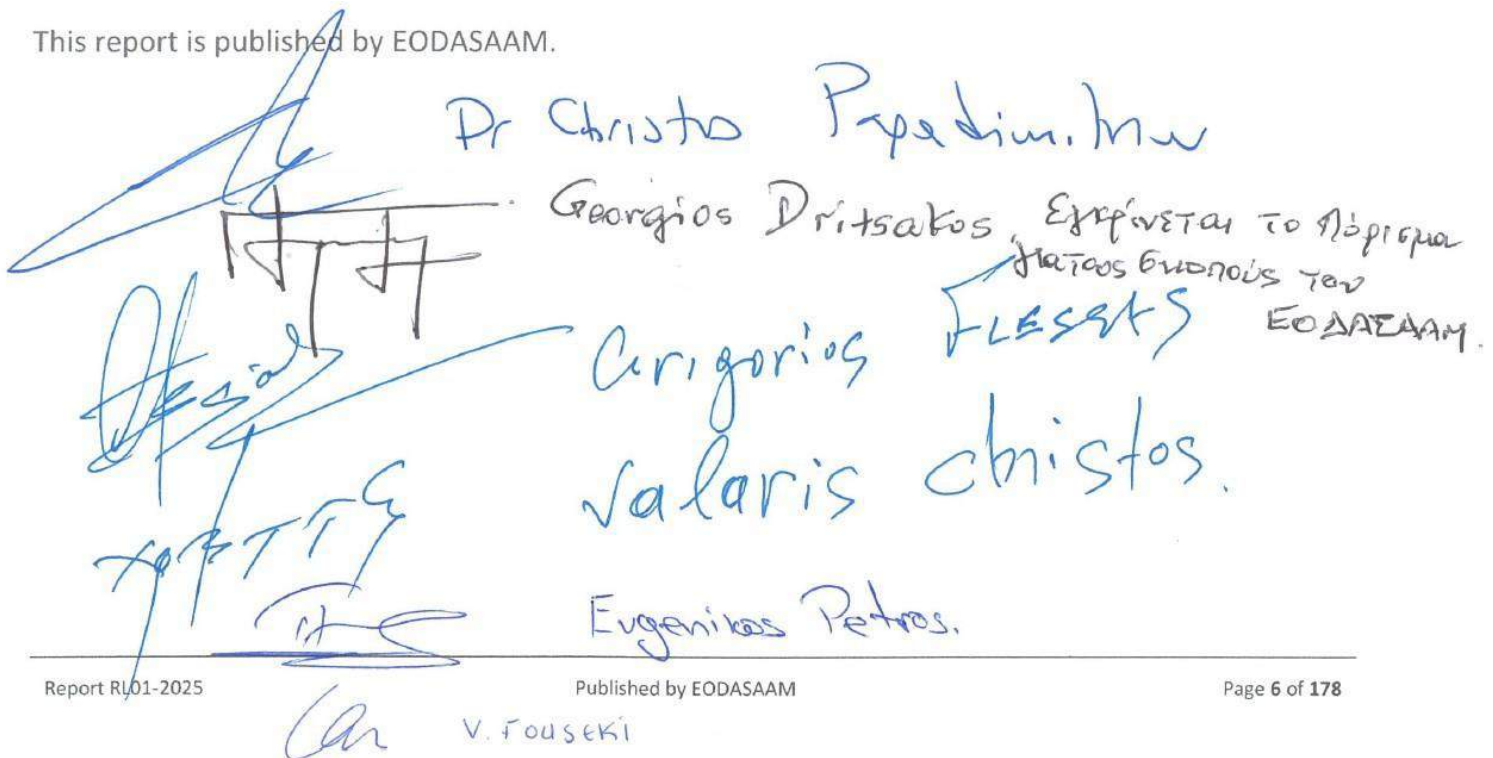 This report is published by EODASAAM.
Dr Christos Papadimitriou
Georgios Dritsakos, Εγκρίνεται το Πόρισμα
για τους σκοπούς του
ΕΟΔΑΣΑΑΜ.
Grigorios FLESSAS
Valaris christos.
Evgenikos Petros.
Report RL01-2025 Published by EODASAAM Page 6 of 178
V. FOUSEKI